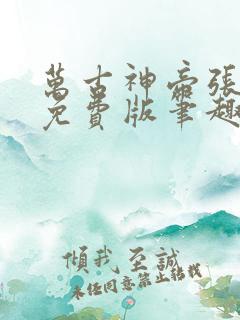 萬古神帝張
免費版筆趣
傾我至誠
未經同意禁止轉載